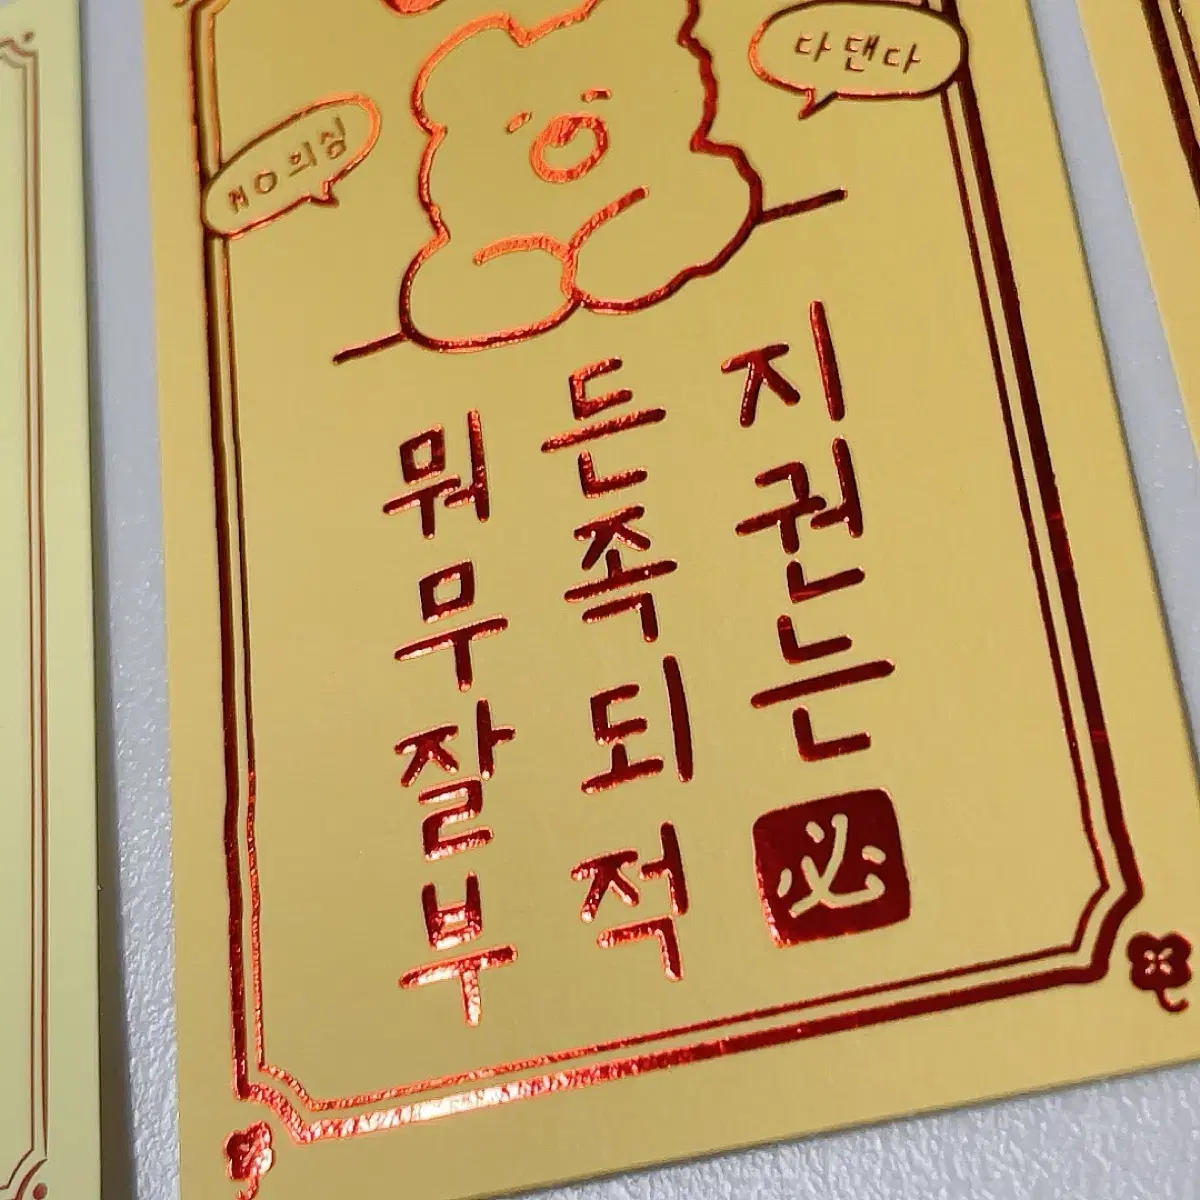 NO의심
다 댄다
뭐든지
무족권
잘되는
부적必